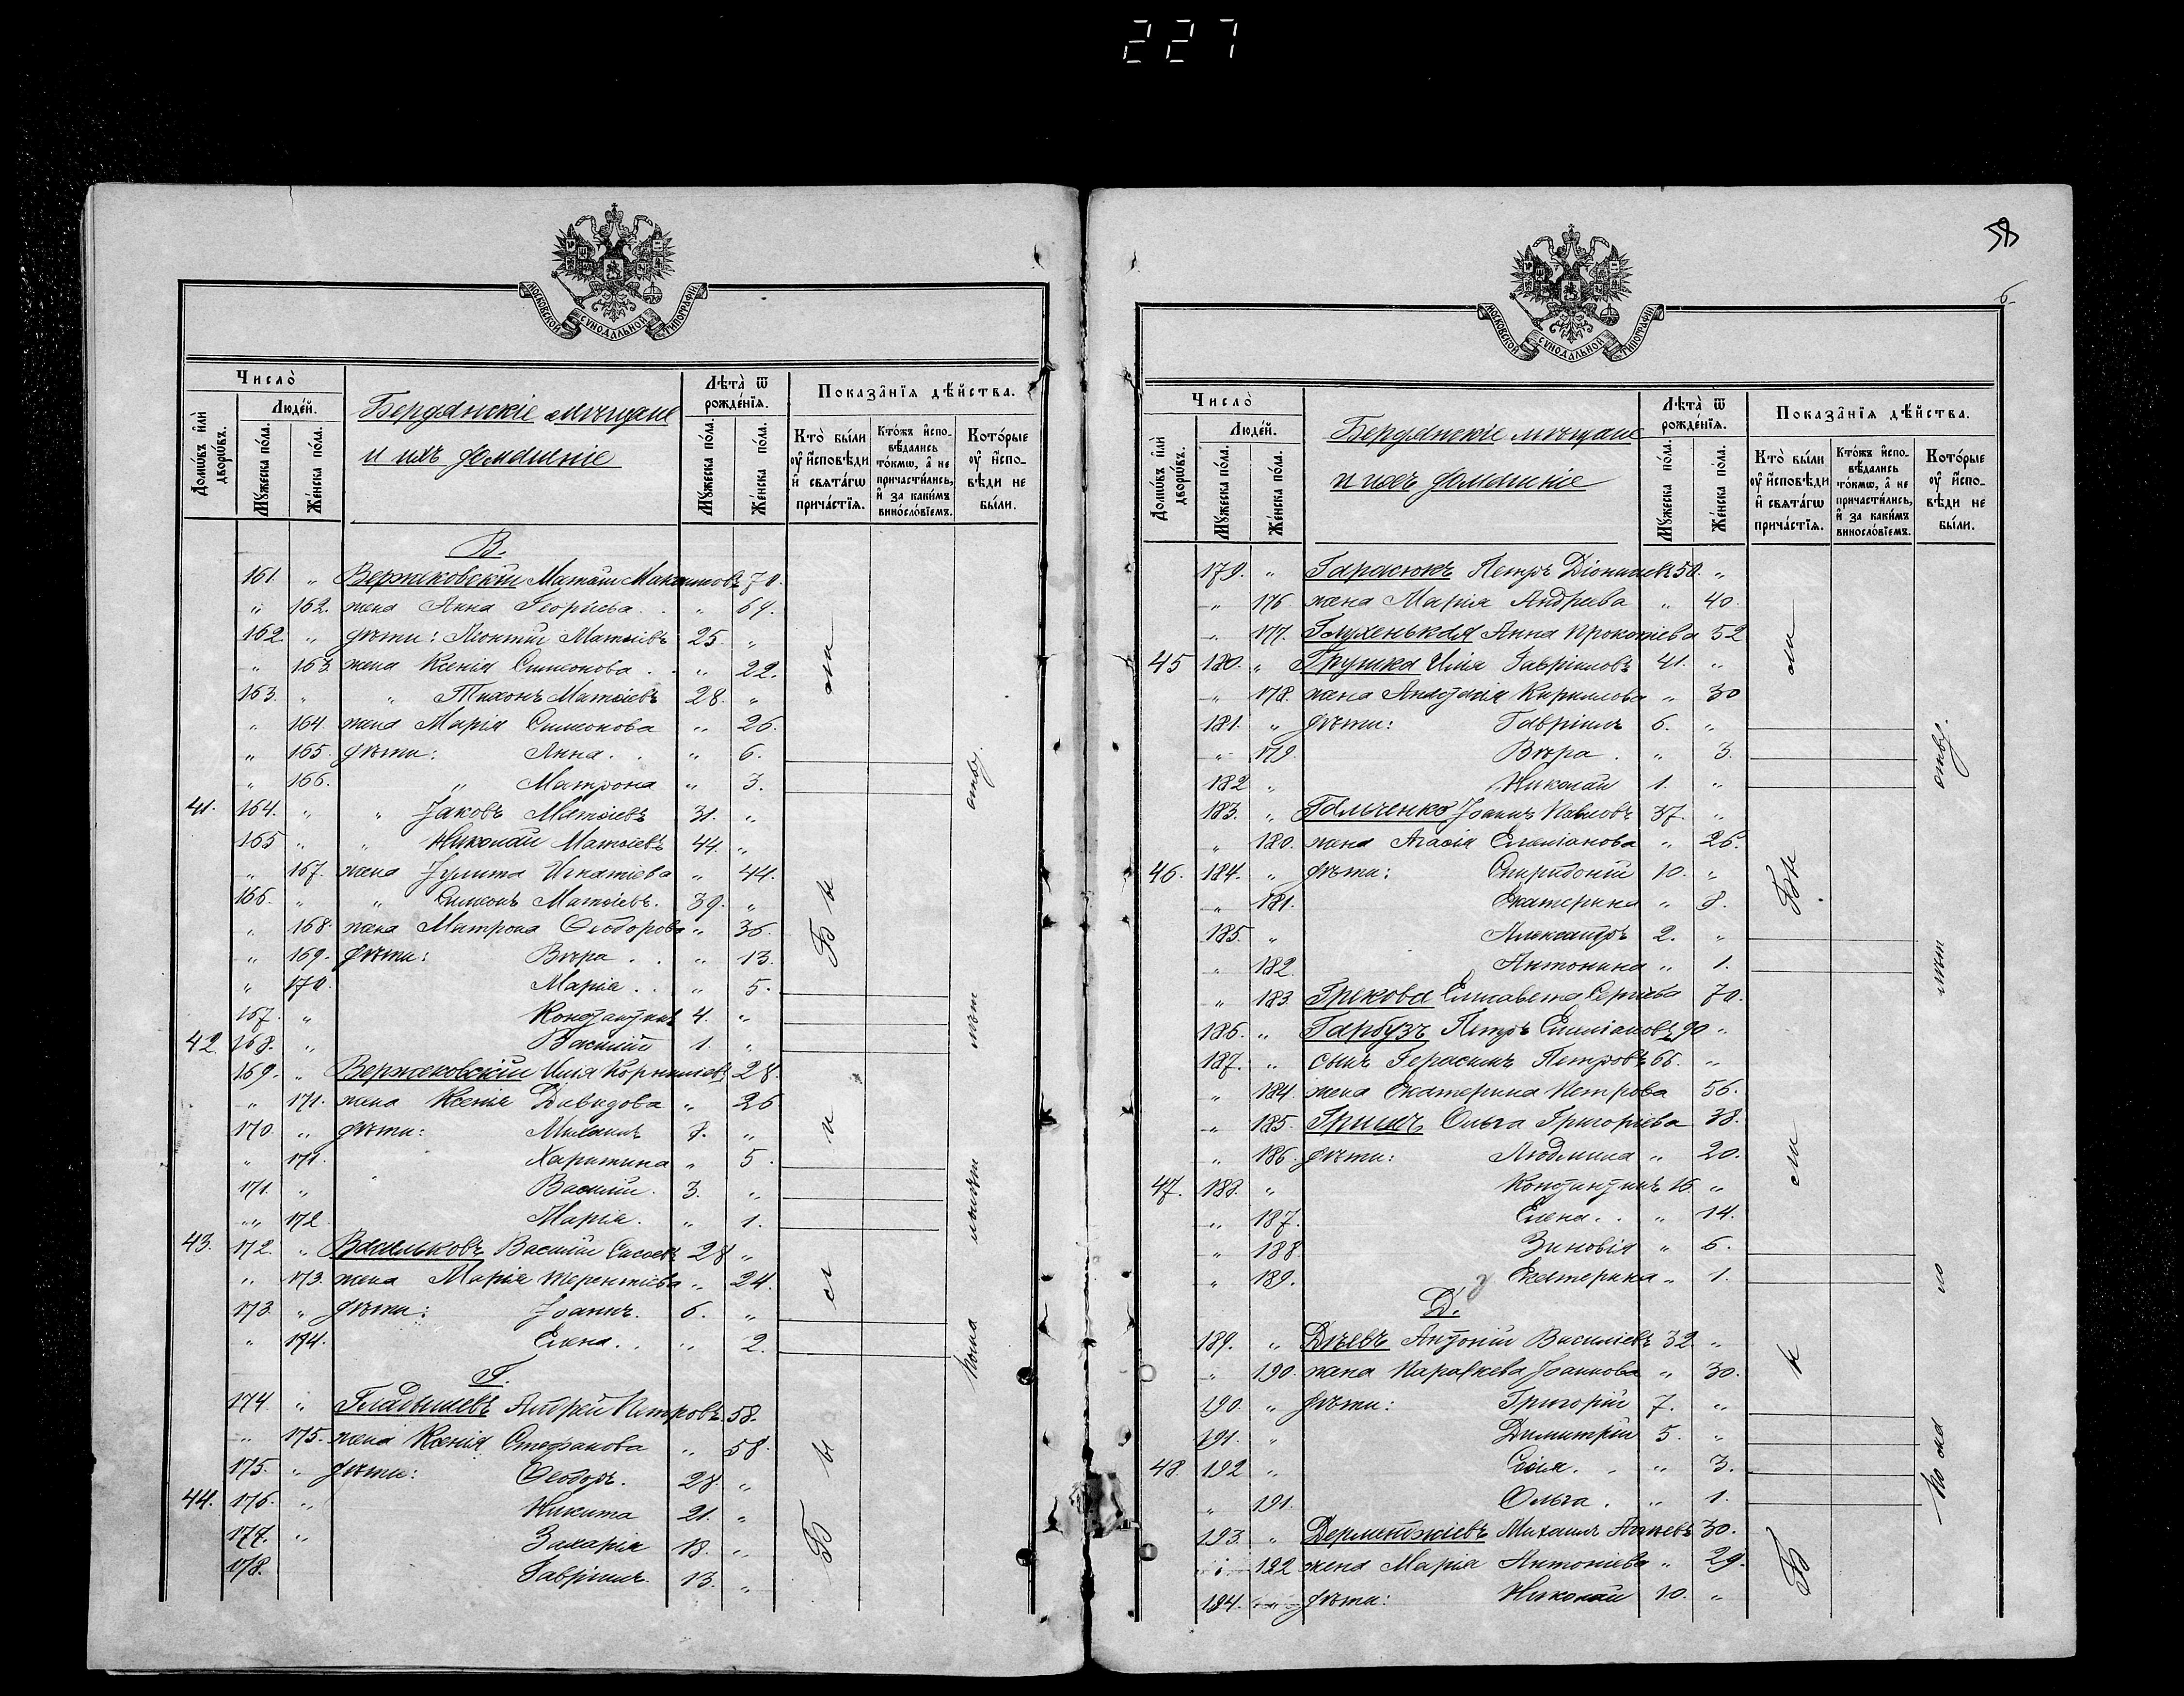 227
МОСКОВСКОЙ СѴНОДАЛЬНОЙ ТИПОГРАФІИ
Число̀
Людéй.
Домѡ́въ и҆лѝ дворѡ́въ.
Мꙋ́жеска по́ла.
Же́нска по́ла.
Бердянскіе мѣщане
и ихъ домашніе
Лѣта̀ ѿ рождéнїѧ.
Мꙋ́жеска по́ла.
Же́нска по́ла.
Показа̑нїѧ дѣ́йства.
Кто̀ бы́ли ᲂу҆ и҆сповѣ́ди и҆ свѧта́гѡ прича́стїѧ.
Кто́жъ и҆сповѣ́дались то́кмѡ, а҆ не причасти́лись, и҆ за каки́мъ виносло́вїемъ.
Кото́рые ᲂу҆ и҆сповѣ́ди не бы́ли.
В.
161. " Вержаковскій Матѳій Максимовъ 70.
" 162. жена Анна Георгіева . . " 69.
162. " дѣти: Леонтій Матѳіевъ 25 "
" 163. жена Ксенія Симеонова . . " 22.
163. " " Тихонъ Матѳіевъ 28. "
" 164. жена Марія Симеонова " 26.
" 165. дѣти: Анна . . " 6.
" 166. " Матрона " 3.
41. 164. " " Іаковъ Матѳіевъ 31. "
165 " " Николай Матѳіевъ 44. "
" 167. жена Іулита Игнатіева " 44.
166. " " Симеонъ Матѳіевъ. 39. "
" 168. жена Матрона Ѳеодорова " 36.
" 169. дѣти: Вѣра . . " 13.
" 170 Марія . . " 5.
167. " Константинъ 4. "
42. 168. " Василій 1. "
169. " Вержаковскій Илія Корниліевъ 28.
" 171. жена Ксенія Давидова " 26
170. " дѣти: Михаилъ 8. "
" 171. Харитина " 5.
171. " Василій. 3. "
" 172 Марія. " 1.
43. 172. " Васильковъ Василій 28 "
" 173. жена Марія Терентіева " 24.
173. " дѣти: Іоаннъ. 6. "
" 174. Елена . . " 2.
Г.
174. " Гладышевъ Андрей Петровъ 58.
" 175. жена Ксенія Стефанова " 58.
175. " дѣти: Ѳеодоръ. 28. "
44. 176. " Никита 21. "
177. " Захарія 18. "
178. Гавріилъ 13. "
Были
Были
отвѣ.
58
6.
МОСКОВСКОЙ СѴНОДАЛЬНОЙ ТИПОГРАФІИ
Число̀
Людéй.
Домѡ́въ и҆лѝ дворѡ́въ.
Мꙋ́жеска по́ла.
Же́нска по́ла.
Бердянскіе мѣщане
и ихъ домашніе
Лѣта̀ ѿ рождéнїѧ.
Мꙋ́жеска по́ла.
Же́нска по́ла.
Показа̑нїѧ дѣ́йства.
Кто̀ бы́ли ᲂу҆ и҆сповѣ́ди и҆ свѧта́гѡ прича́стїѧ.
Кто́жъ и҆сповѣ́дались то́кмѡ, а҆ не причасти́лись, и҆ за каки́мъ виносло́вїемъ.
Кото́рые ᲂу҆ и҆сповѣ́ди не бы́ли.
179. " Гарасюкъ Петръ 50. "
" 176 жена Марія Андреева " 40.
" 177. Глухенькая Анна Прокопіева 52
45 180. " Грушка Илія Гавріиловъ 41. "
" 178. жена Анастасія Кириллова " 30
181. " дѣти: Гавріилъ 6. "
" 179. Вѣра . " 3.
182 " Николай 1. "
183. " Гальченко Іоаннъ Павловъ 37. "
" 180. жена Агаѳія Емеліанова " 26.
46. 184. " дѣти: Спиридоній 10. "
" 181. Екатерина " 8.
185. " Александръ 2. "
" 182. Антонина " 1.
" 183 Грекова Елисавета Сергіева 70.
186. " Гарбузъ Петръ Емеліановъ 90 "
187. " сынъ Герасимъ Петровъ 66. "
" 184 жена Екатерина Петрова 56.
" 185. Ольга Григоріева 38.
" 186. дѣти: Людмила " 20.
47. 188. " Константинъ 16 "
" 187. Елена . . " 14.
" 188. Зиновія " 6.
" 189. Екатерина " 1.
Д.
189. " Дѣевъ Антоній Василіевъ 32. "
" 190. жена Параскева Іоаннова " 30.
190. " дѣти: Григорій 7. "
191. " Димитрій 5. "
48. 192 " Софія. . " 3.
" 191. Ольга . " 1.
193. " Дерментжіевъ Михаилъ 30.
192 жена Марія Антоніева " 29.
194. " дѣти: Николай 10. "
Были
Были
отвѣ.